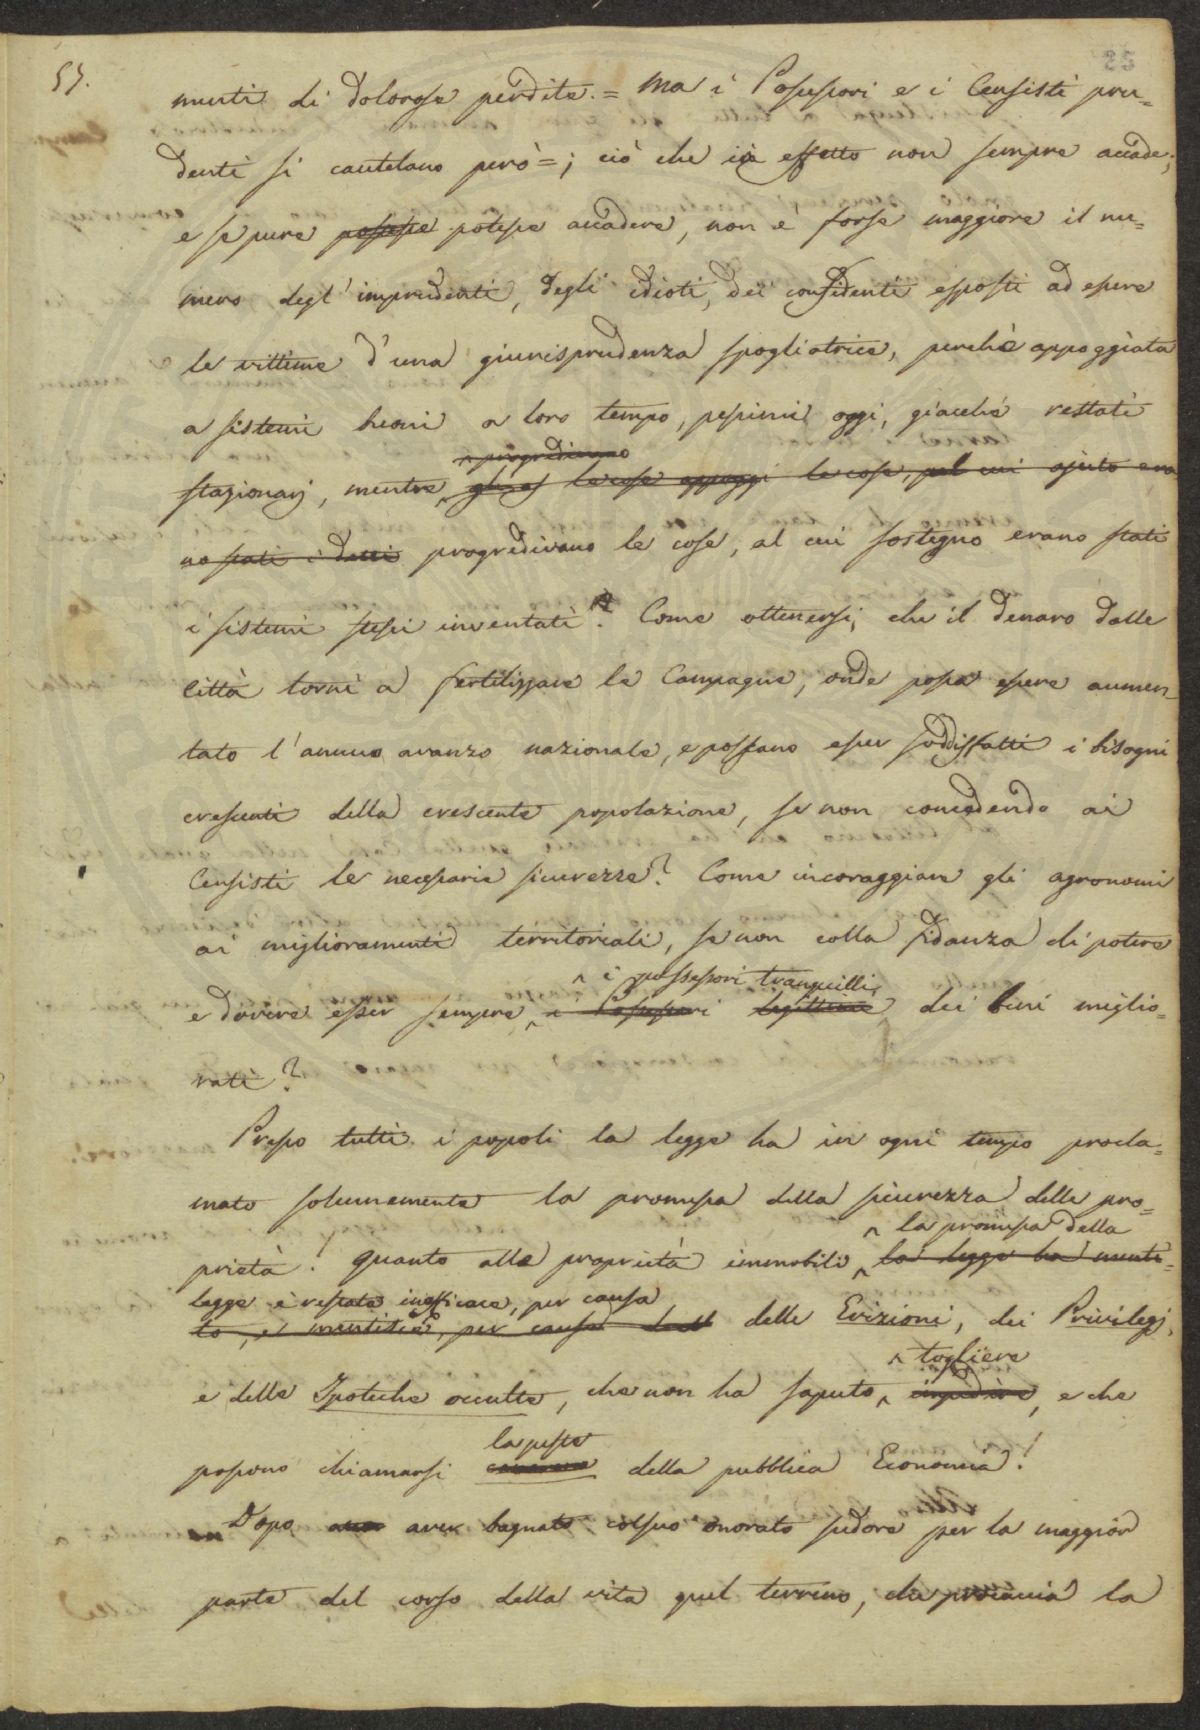 55.
menti di dolorose perdite. = Ma i Possessori e i Censisti pru=
denti si cautelano però =; ciò che in effetto non sempre accade;
e se pure potesse accadere, non è forse maggiore il nu=
mero degl'imprudenti, degli idioti, dei confidenti esposti ad essere
le vittime d'una giurisprudenza spogliatrice, perchè appoggiata
a sistemi buoni a loro tempo, pessimi oggi, giacchè restati
progredivano
stazionarj, mentre le cose appoggi le cose, pel cui ajuto era
no stati i detti progredivano le cose, al cui sostegno erano stati
i sistemi stessi inventati? Come ottenersi, che il denaro dalle
città torni a fertilizzare le Campagne, onde possa essere aumen
tato l'annuo avanzo nazionale, e possano esser soddisfatti i bisogni
crescenti della crescente popolazione, se non concedendo ai
Censisti le necessarie sicurezze? Come incoraggiare gli agronomi
ai miglioramenti territoriali, se non colla fidanza di potere
i possessori tranquilli
e dovere esser sempre i Possessori legittimi dei beni miglio=
rati?
Presso tutti i popoli la legge ha in ogni tempo procla=
mato solennemente la promessa della sicurezza delle pro=
la promessa della
prietà! Quanto alle proprietà immobili la legge ha menti=
legge è restata inefficace, per causa
to, e mentisce, per causa delle Evizioni, dei Privilegj,
togliere
e delle Ipoteche occulte, che non ha saputo impedire, e che
la peste
possono chiamarsi della pubblica Economia!
Dopo aver bagnato col suo onorato sudore per la maggior
parte del corso della vita quel terreno, che procaccia la